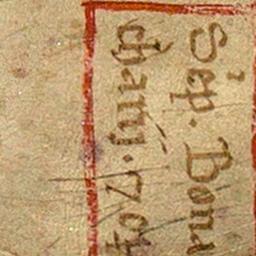 Sép. Bona
charij. 1704